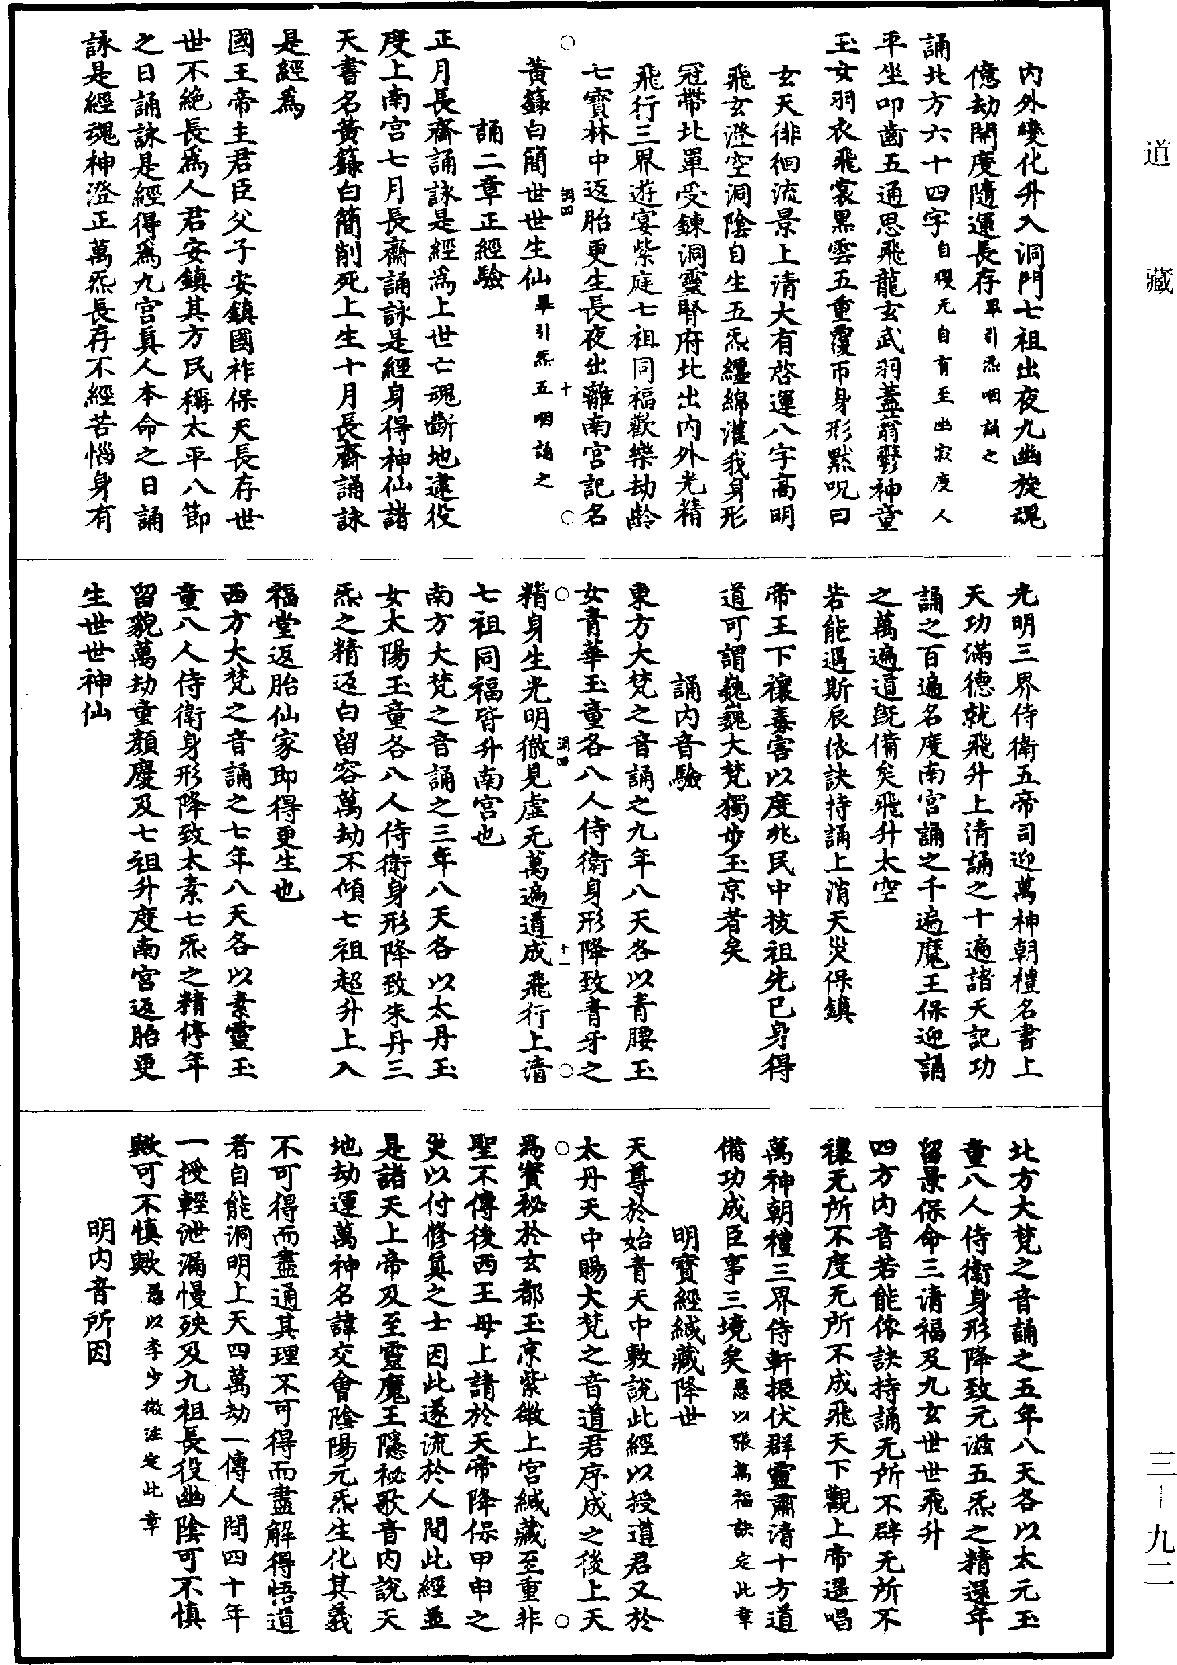 道藏
內外變化升入洞門七祖出夜九幽旋魂
億劫開度隨運長存畢引炁咽誦之
誦北方六十四字自獶无自育至幽寂度人
平坐叩齒五通思飛龍玄武羽蓋蓊鬱神童
玉女羽衣飛裳黑雲五重覆帀身形默呪曰
玄天徘徊流景上清大有啓運八字高明
飛玄澄空洞陰自生五炁纏綿灌我身形
冠帶北單受鍊洞靈腎府北出內外光精
飛行三界遊宴紫庭七祖同福歡樂劫齡
七寶林中返胎更生長夜出離南宮記名
洞四 十
黃籙白簡世世生仙畢引炁五咽誦之
誦二章正經驗
正月長齋誦詠是經爲上世亡魂斷地逮役
度上南宮七月長齋誦詠是經身得神仙諸
天書名黃籙白簡削死上生十月長齋誦詠
是經爲
國王帝主君臣父子安鎮國祚保天長存世
世不絶長爲人君安鎮其方民稱太平八節
之日誦詠是經得爲九宮眞人本命之日誦
詠是經魂神澄正萬炁長存不經苦惱身有
光明三界侍衛五帝司迎萬神朝禮名書上
天功滿德就飛升上清誦之十遍諸天記功
誦之百遍名度南宮誦之千遍魔王保迎誦
之萬遍道既備矣飛升太空
若能遇斯辰依訣持誦上消天災保鎮
帝王下禳毒害以度兆民中拔祖先己身得
道可謂巍巍大梵獨步玉京者矣
誦內音驗
東方大梵之音誦之九年八天各以青腰玉
女青華玉童各八人侍衛身形降致青牙之
洞四 十一
精身生光明徹見虛无萬遍道成飛行上清
七祖同福皆升南宮也
南方大梵之音誦之三年八天各以太丹玉
女太陽玉童各八人侍衛身形降致朱丹三
炁之精返白留容萬劫不傾七祖超升上入
福堂返胎仙家即得更生也
西方大梵之音誦之七年八天各以素靈玉
童八人侍衛身形降致太素七炁之精停年
留貌萬劫童顏慶及七祖升度南宮返胎更
生世世神仙
北方大梵之音誦之五年八天各以太元玉
童八人侍衛身形降致元滋五炁之精還年
留景保命三清福及九玄世世飛升
四方內音若能依訣持誦无所不辟无所不
禳无所不度无所不成飛天下觀上帝遥唱
萬神朝禮三界侍軒振伏群靈肅清十方道
備功成臣事三境矣愚以張萬福訣定此章
明寶經緘藏降世
天尊於始青天中敷說此經以授道君又於
太丹天中賜大梵之音道君序成之後上天
爲寶秘於玄都玉京紫微上宮緘藏至重非
聖不傳後西王母上請於天帝降保甲申之
災以付修眞之士因此遂流於人間此經並
是諸天上帝及至靈魔王隱祕歌音內說天
地劫運萬神名諱交會陰陽元炁生化其義
不可得而盡通其理不可得而盡解得悟道
者自能洞明上天四萬劫一傳人間四十年
一授輕泄漏慢殃及九祖長役幽陰可不慎
歟可不慎歟愚以李少微注定此章
明內音所因
三－九二